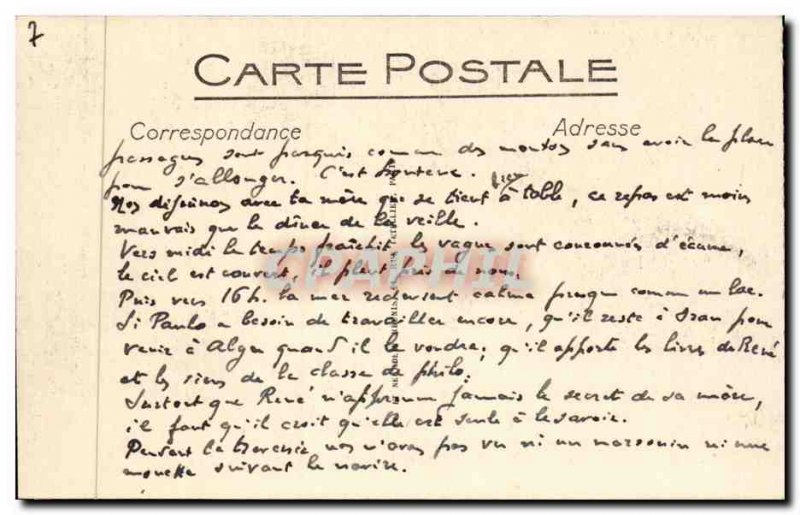 7
CARTE POSTALE
Correspondance
Adresse
passagers sont parqués comme des moutons sans avoir la place
pour s'allonger. C'est honteux.
Nos déjeunons avec ta mère que se tient à table, ce repas est moins
mauvais que le dîner de la veille.
Vers midi le temps fraîchit les vagues sont couronnées d'écume,
le ciel est couvert, il pleut près de nous.
Puis vers 16h. la mer redevient calme presque comme un lac.
Si Paulo a besoin de travailler encore, qu'il reste à Oran pour
venir à Alger quand il le voudra; qu'il apporte les livres de René
et les siens de la classe de philo.
Surtout que René n'apprenne jamais le secret de sa mère,
il faut qu'il croit qu'elle est seule à le savoir.
Pendant la traversée nos n'avons pas vu ni un marsouin ni une
mouette suivant le navire.
CPAPHIL